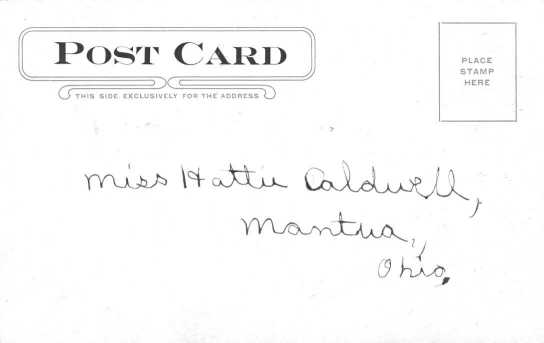 POST CARD
THIS SIDE EXCLUSIVELY FOR THE ADDRESS
PLACE
STAMP
HERE
Miss Hattie Caldwell,
Mantua,
Ohio.